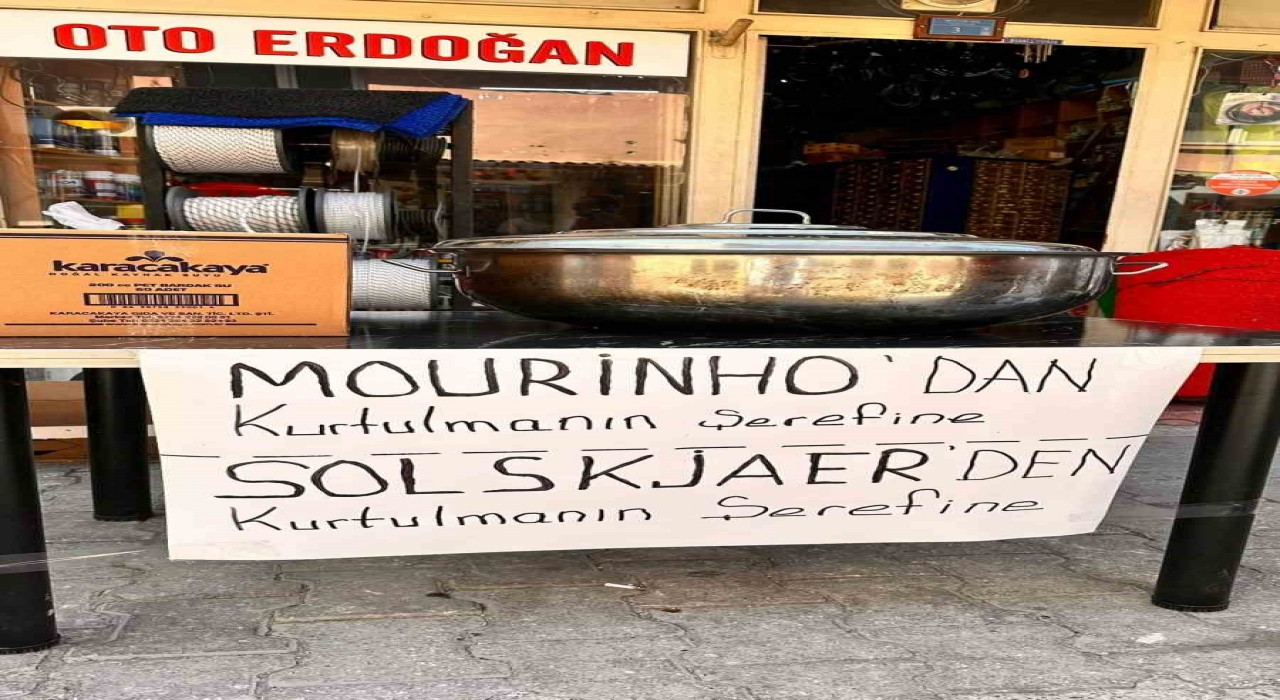 OTO ERDOĞAN
karacakaya
DOĞAL KAYNAK SUYU
200 cc PET BARDAK SU
60 ADET
KARACAKAYA GIDA VE SAN. TİC. LTD. ŞTİ.
MOURİNHO'DAN
Kurtulmanın Şerefine
SOLSKJAER'DEN
Kurtulmanın Şerefine